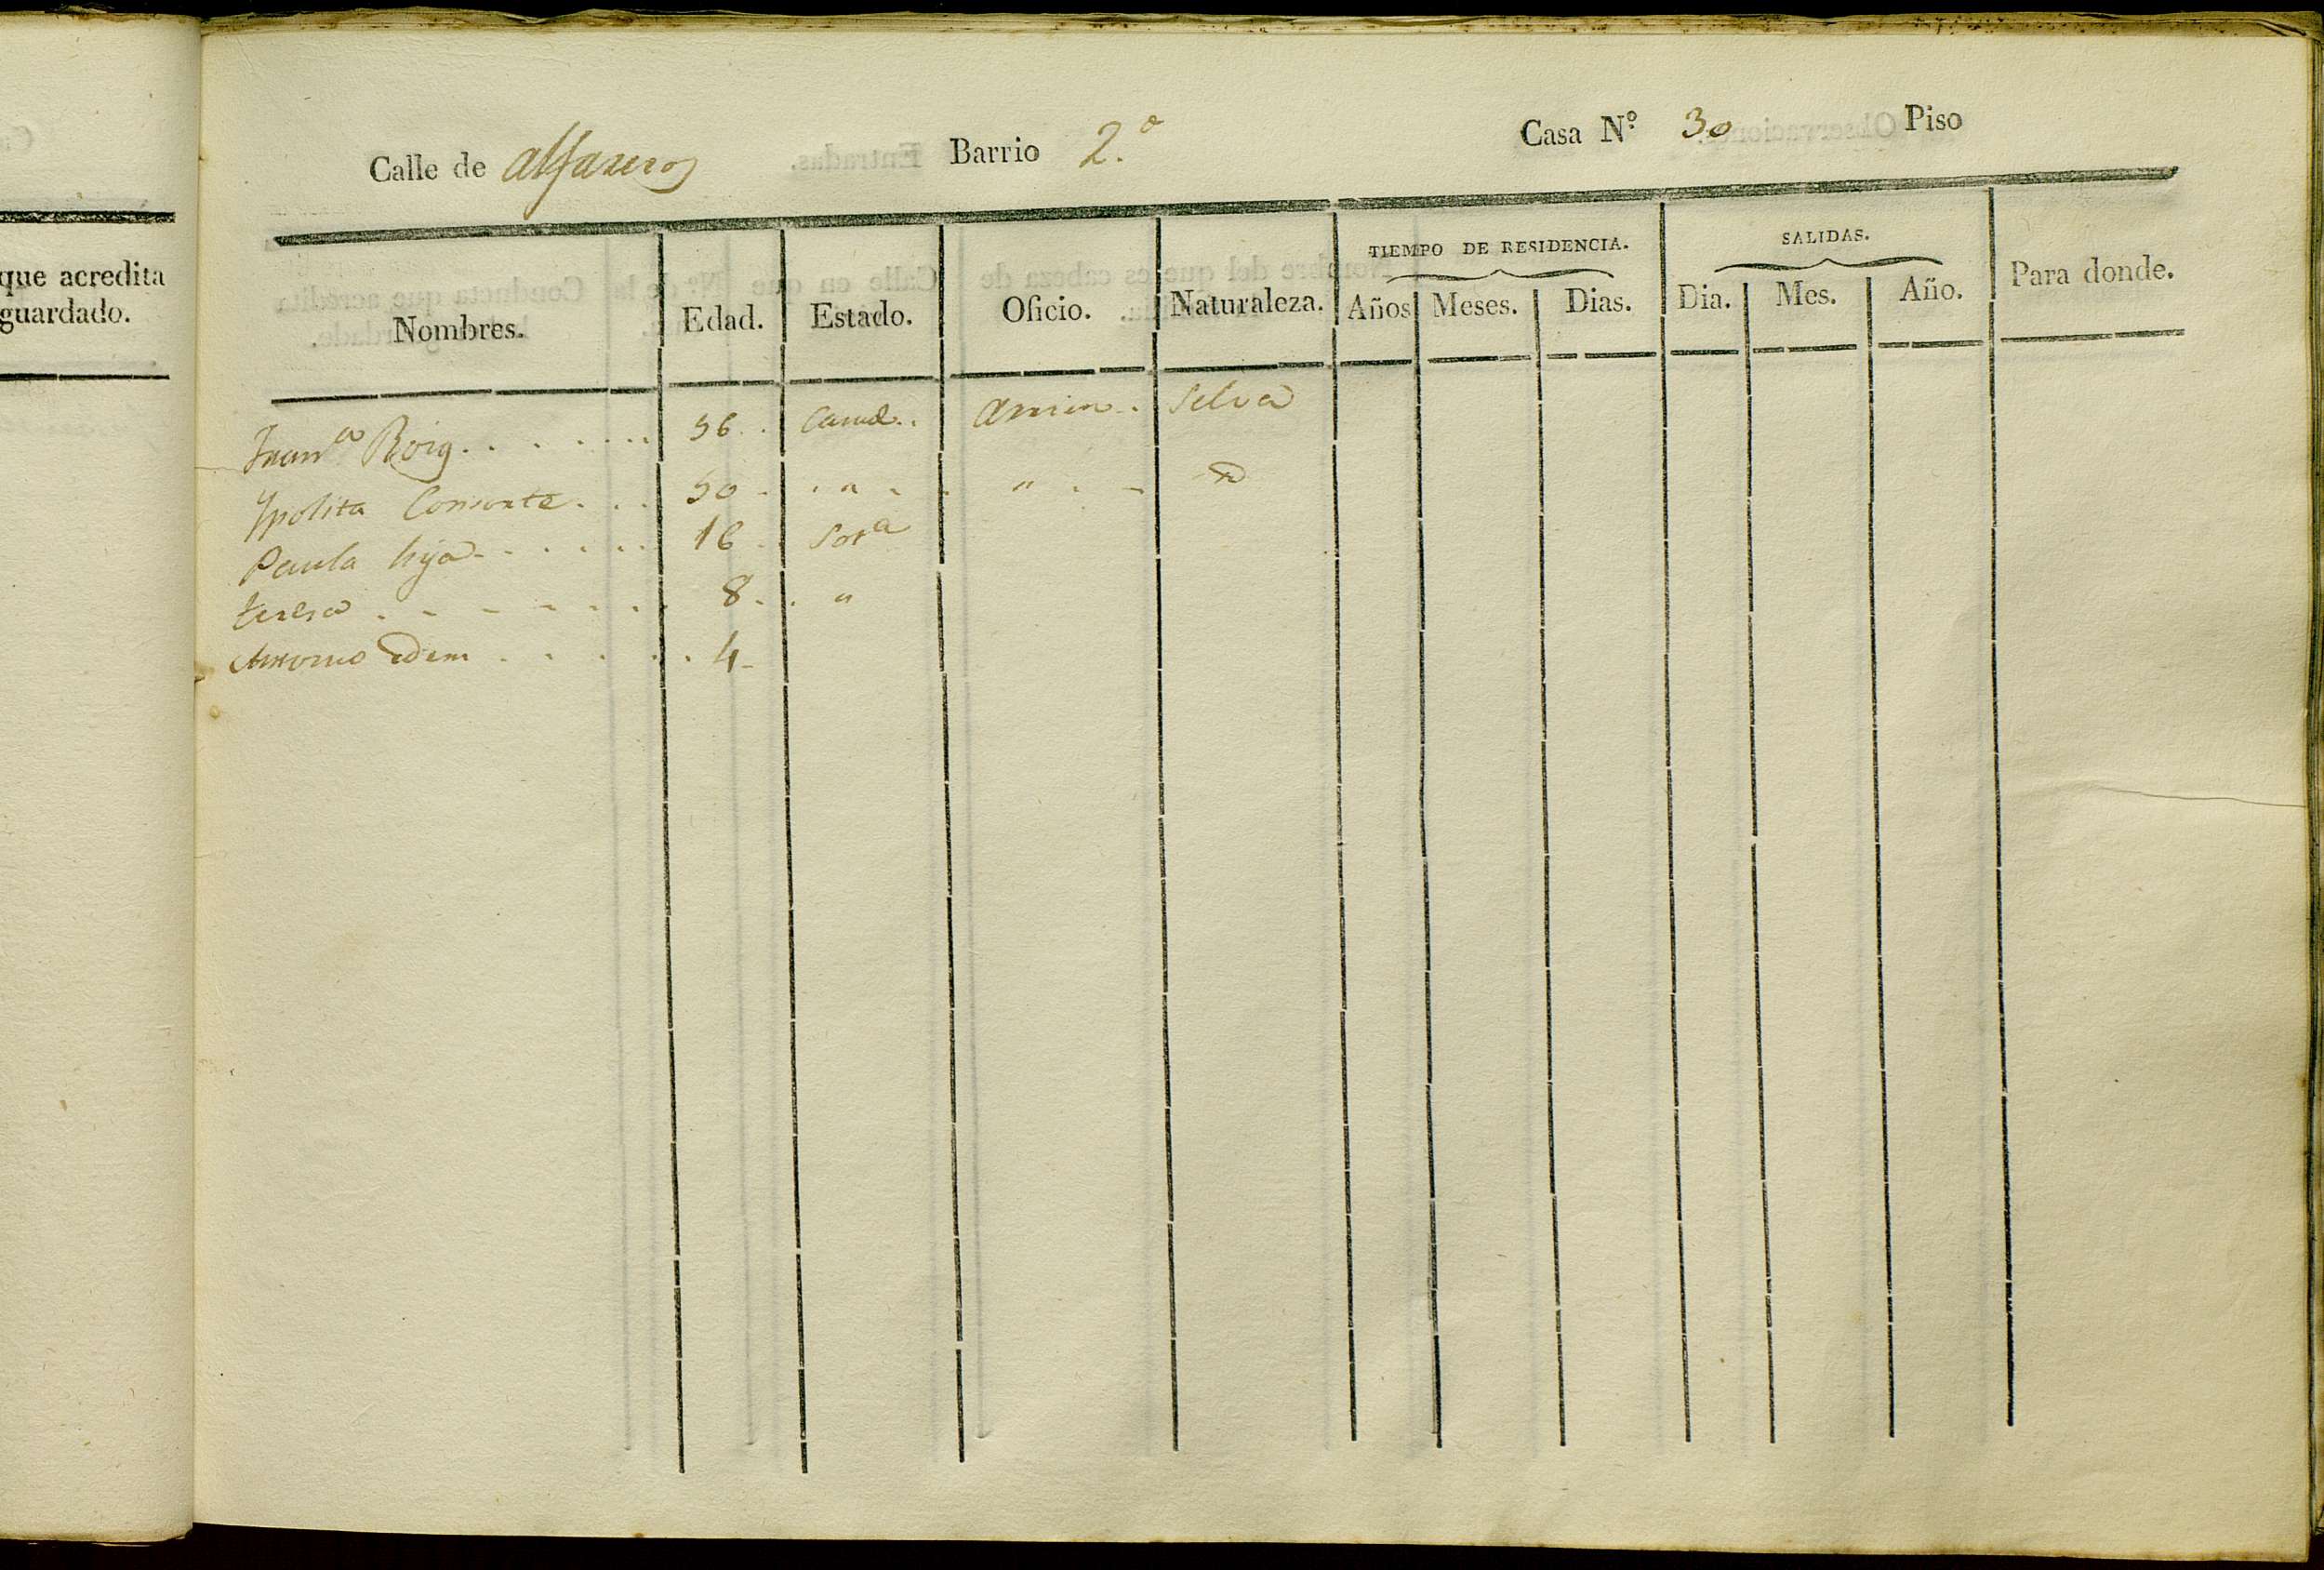 que acredita
guardado.
Calle de Alfareros Barrio 2.º Casa N.º 30 Piso
TIEMPO DE RESIDENCIA. SALIDAS.
Nombres. Edad. Estado. Oficio. Naturaleza. Años Meses. Dias. Dia. Mes. Año. Para donde.
Fran.co Roig. . . . . . . 56 . Casad. . Arrier. . Selva
Ypolita Consorte . . . 50 - . " - . " . - Yd
Paula hija - . . . . . 16 . Solt.a
teresa . - - - - . . . 8 - . "
Antonio idem . . . . . . 4 -